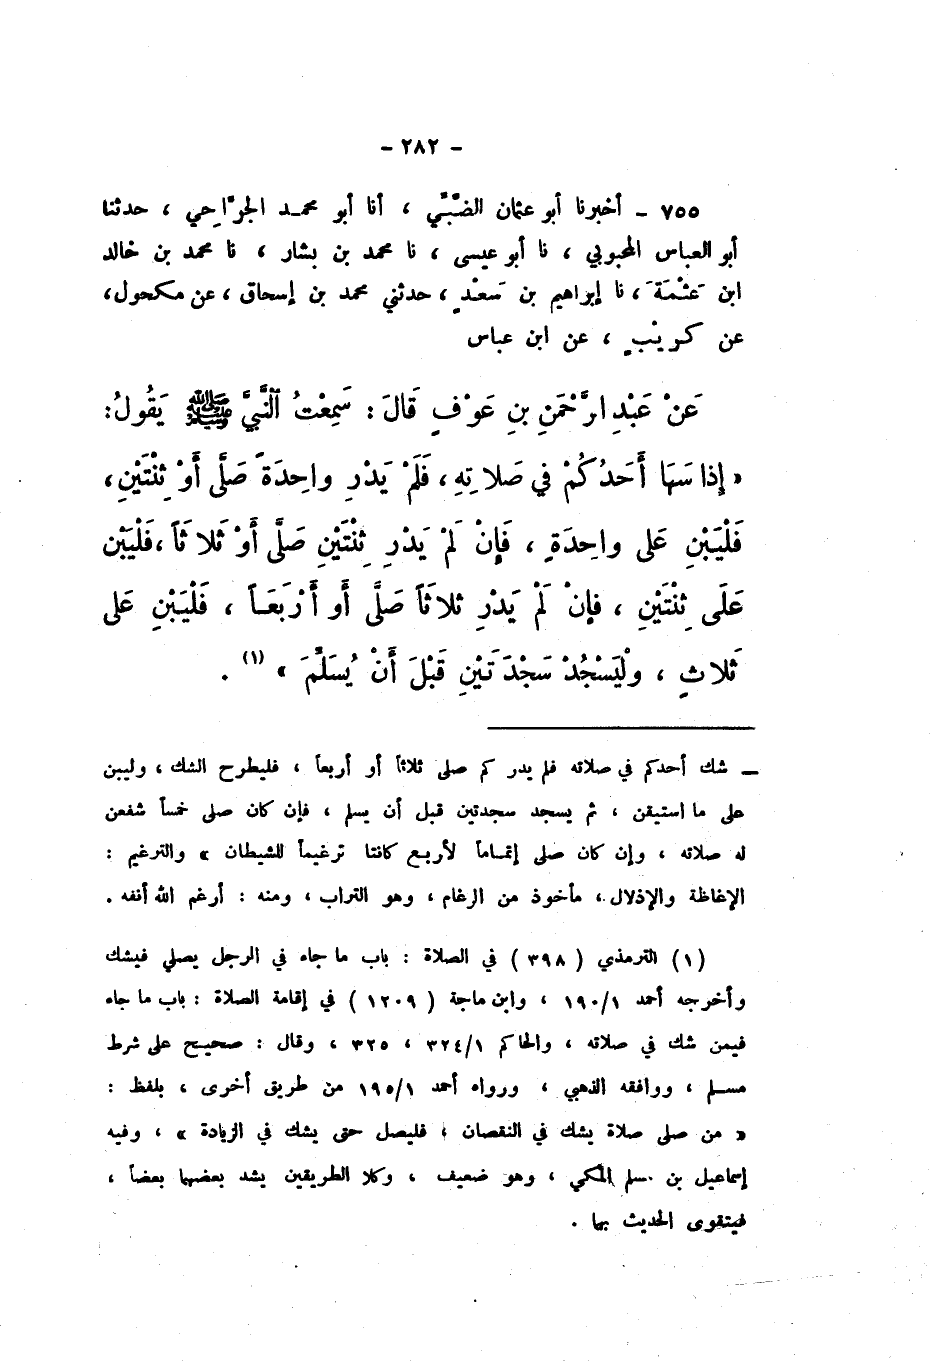 - ٢٨٢ -
٧٥٥ - أخبرنا أبو عثمان الضَّبِّي ، أنا أبو محمـد الجرَّاحِي ، حدثنا
أبو العباس المحبوبي ، نا أبو عيسى ، نا محمد بن بشار ، نا محمد بن خالد
ابن عَثْمَةَ ، نا إبراهيم بن سَعْدٍ ، حدثني محمد بن إسحاق ، عن مكحول ،
عن كريْبٍ ، عن ابن عباس
عَنْ عَبْدِ الرَّحْمَنِ بنِ عَوْفٍ قَالَ : سَمِعْتُ النَّبِيَّ ﷺ يَقُولُ :
« إِذا سَهَا أَحَدُكُمْ في صَلاتِهِ ، فَلَمْ يَدْرِ واحِدَةً صَلَّى أَوْ ثِنْتَيْنِ ،
فَلْيَبْنِ عَلى واحِدَةٍ ، فَإِنْ لَمْ يَدْرِ ثِنْتَيْنِ صَلَّى أَوْ ثَلاثَاً ، فَلْيَبْنِ
عَلَى ثِنْتَيْنِ ، فإِنْ لَمْ يَدْرِ ثلاثَاً صَلَّى أَو أَرْبَعَـاً ، فَلْيَبْنِ عَلى
ثَلاثٍ ، ولْيَسْجُدْ سَجْدَتَيْنِ قَبْلَ أَنْ يُسَلِّمَ » (١) .
ـ شك أحدكم في صلاته فلم يدر كم صلى ثلاثاً أو أربعاً ، فليطرح الشك ، وليبن
على ما استيقن ، ثم يسجد سجدتين قبل أن يسلم ، فإن كان صلى خمساً شفعن
له صلاته ، وإن كان صلى إتمـاماً لأربـع كانتا ترغيماً للشيطان » والترغيم :
الإغاظة والإذلال ، مأخوذ من الرغام ، وهو التراب ، ومنه : أرغم الله أنفه .
(١) الترمذي ( ٣٩٨ ) في الصلاة : باب ما جاء في الرجل يصلي فيشك
وأخرجه أحمد ١/١٩٠ ، وابن ماجة ( ١٢٠٩ ) في إقامة الصلاة : باب ما جاء
فيمن شك في صلاته ، والحاكم ١/٣٢٤ ، ٣٢٥ ، وقال : صحيح على شرط
مسـلم ، ووافقه الذهبي ، ورواه أحمد ١/١٩٥ من طريق أخرى ، بلفظ :
« من صلى صلاة يشك في النقصان ، فليصل حتى يشك في الزيادة » ، وفيه
إسماعيل بن مسلم المكي ، وهو ضعيف ، وكلا الطريقين يشد بعضهما بعضاً ،
فيتقوى الحديث بها .